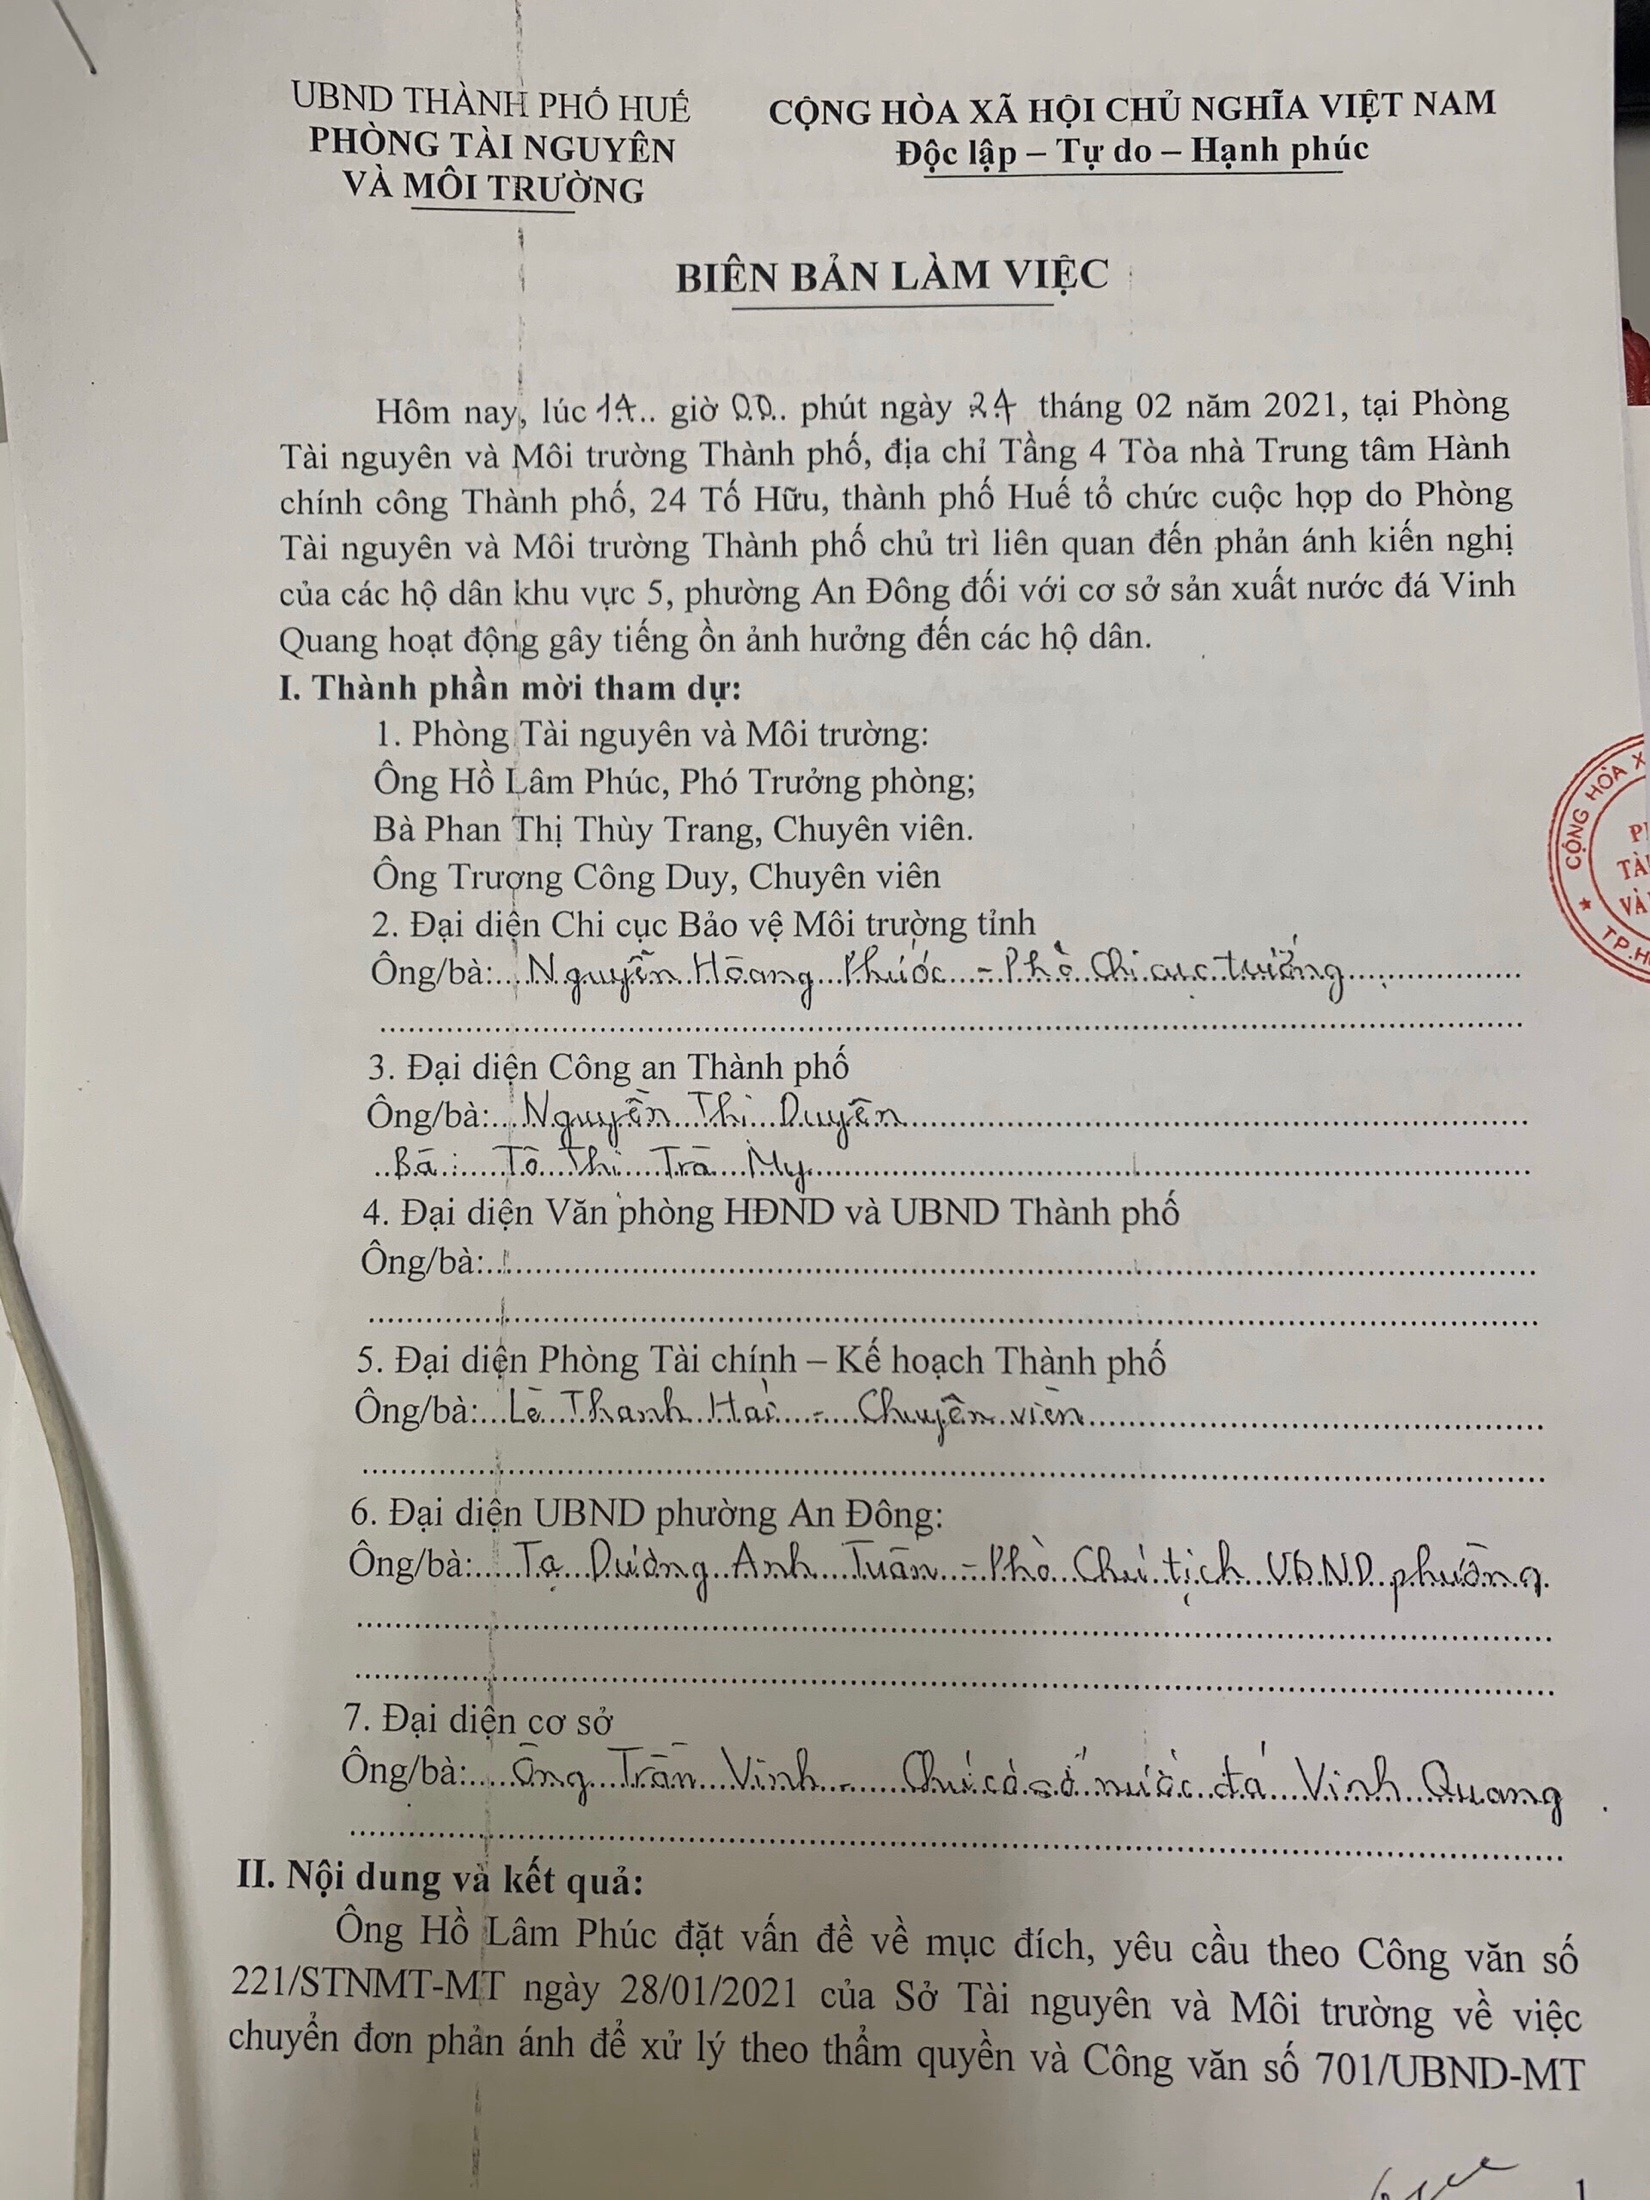 UBND THÀNH PHỐ HUẾ
PHÒNG TÀI NGUYÊN
VÀ MÔI TRƯỜNG
CỘNG HÒA XÃ HỘI CHỦ NGHĨA VIỆT NAM
Độc lập – Tự do – Hạnh phúc
BIÊN BẢN LÀM VIỆC
Hôm nay, lúc 14.. giờ 00.. phút ngày 24 tháng 02 năm 2021, tại Phòng
Tài nguyên và Môi trường Thành phố, địa chỉ Tầng 4 Tòa nhà Trung tâm Hành
chính công Thành phố, 24 Tố Hữu, thành phố Huế tổ chức cuộc họp do Phòng
Tài nguyên và Môi trường Thành phố chủ trì liên quan đến phản ánh kiến nghị
của các hộ dân khu vực 5, phường An Đông đối với cơ sở sản xuất nước đá Vinh
Quang hoạt động gây tiếng ồn ảnh hưởng đến các hộ dân.
I. Thành phần mời tham dự:
1. Phòng Tài nguyên và Môi trường:
Ông Hồ Lâm Phúc, Phó Trưởng phòng;
Bà Phan Thị Thùy Trang, Chuyên viên.
Ông Trương Công Duy, Chuyên viên
2. Đại diện Chi cục Bảo vệ Môi trường tỉnh
Ông/bà: Nguyễn Hoàng Phước - Phó Chi cục trưởng
3. Đại diện Công an Thành phố
Ông/bà: Nguyễn Thị Duyên
Bà : Tô Thị Trà My
4. Đại diện Văn phòng HĐND và UBND Thành phố
Ông/bà:
5. Đại diện Phòng Tài chính – Kế hoạch Thành phố
Ông/bà: Lê Thanh Hải - Chuyên viên
6. Đại diện UBND phường An Đông:
Ông/bà: Tạ Dương Anh Tuấn - Phó Chủ tịch UBND phường
7. Đại diện cơ sở
Ông/bà: Ông Trần Vinh - Chủ cơ sở nước đá Vinh Quang
II. Nội dung và kết quả:
Ông Hồ Lâm Phúc đặt vấn đề về mục đích, yêu cầu theo Công văn số
221/STNMT-MT ngày 28/01/2021 của Sở Tài nguyên và Môi trường về việc
chuyển đơn phản ánh để xử lý theo thẩm quyền và Công văn số 701/UBND-MT
1
CỘNG HÒA X
TÀI
VÀ
TP.H